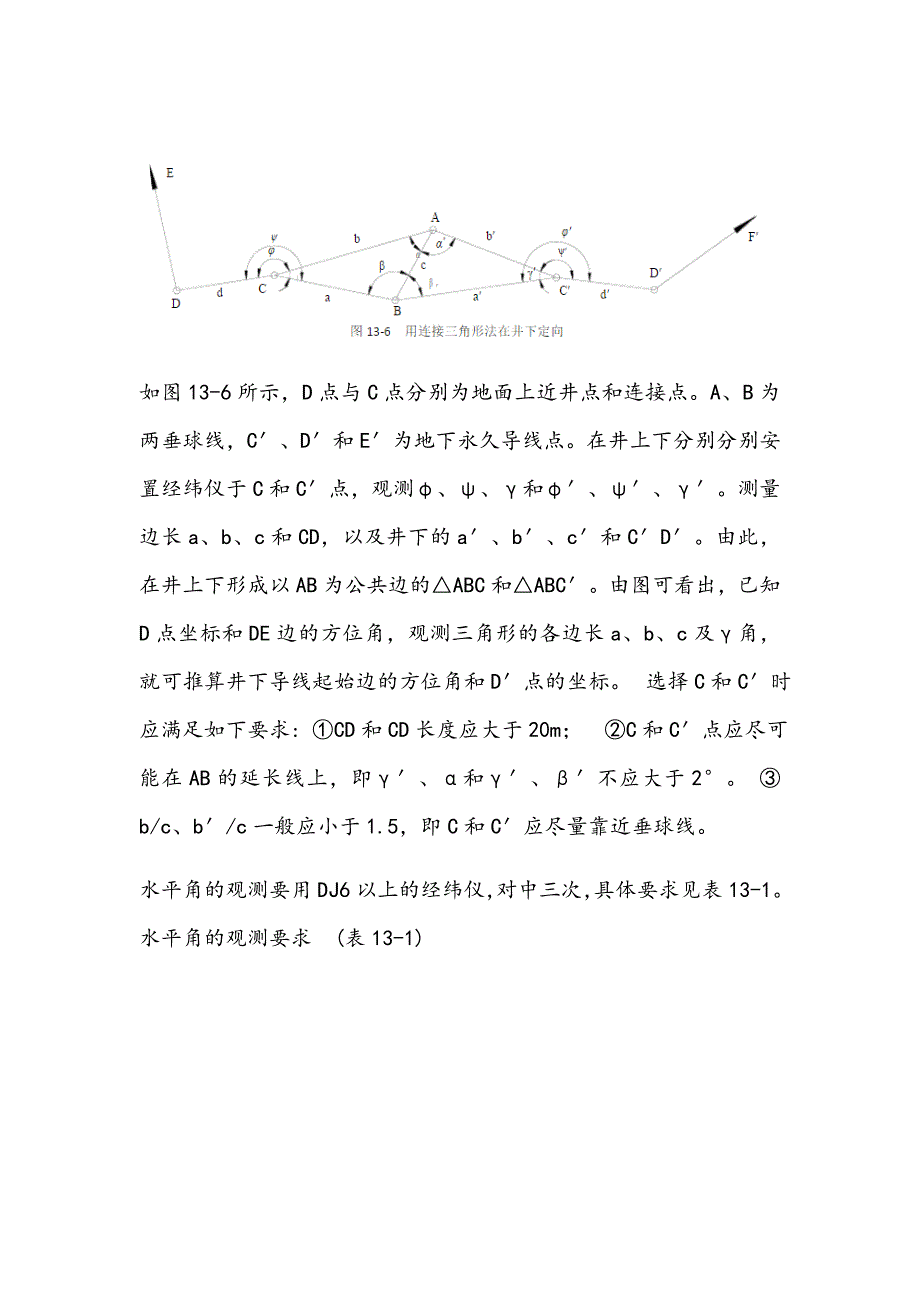 E
A
ψ
φ
b
α
α′
b′
φ′
ψ′
F′
β
c
γ′
D′
D
d
C
a
B
β′
a′
C′
d′
图 13-6 用连接三角形法在井下定向
如图 13-6 所示，D 点与 C 点分别为地面上近井点和连接点。A、B 为
两垂球线，C′、D′和 E′为地下永久导线点。在井上下分别分别安
置经纬仪于 C 和 C′点，观测φ、ψ、γ和φ′、ψ′、γ′。测量
边长 a、b、c 和 CD，以及井下的 a′、b′、c′和 C′D′。由此，
在井上下形成以 AB 为公共边的△ABC 和△ABC′。由图可看出，已知
D 点坐标和 DE 边的方位角，观测三角形的各边长 a、b、c 及γ角，
就可推算井下导线起始边的方位角和 D′点的坐标。 选择 C 和 C′时
应满足如下要求：①CD 和 CD 长度应大于 20m； ②C 和 C′点应尽可
能在 AB 的延长线上，即γ′、α和γ′、β′不应大于 2°。 ③
b/c、b′/c 一般应小于 1.5，即 C 和 C′应尽量靠近垂球线。
水平角的观测要用 DJ6 以上的经纬仪,对中三次,具体要求见表 13-1。
水平角的观测要求 (表 13-1)